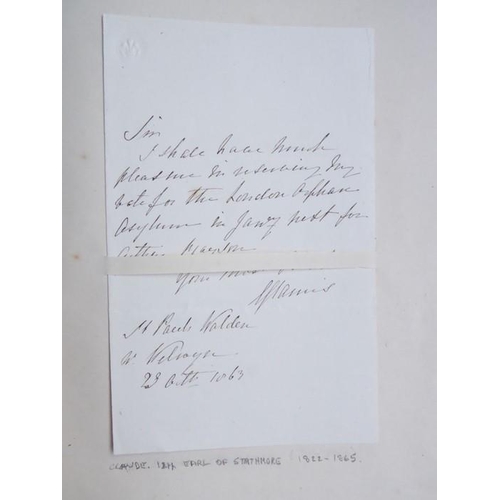 Sir
I shall have much
pleasure in reserving my
vote for the London Orphan
Asylum in Jany next for
Arthur
Your most
Glamis
St Pauls Walden
nr Welwyn
23 Octr 1863
CLAUDE. 12th EARL OF STATHMORE 1822-1865.